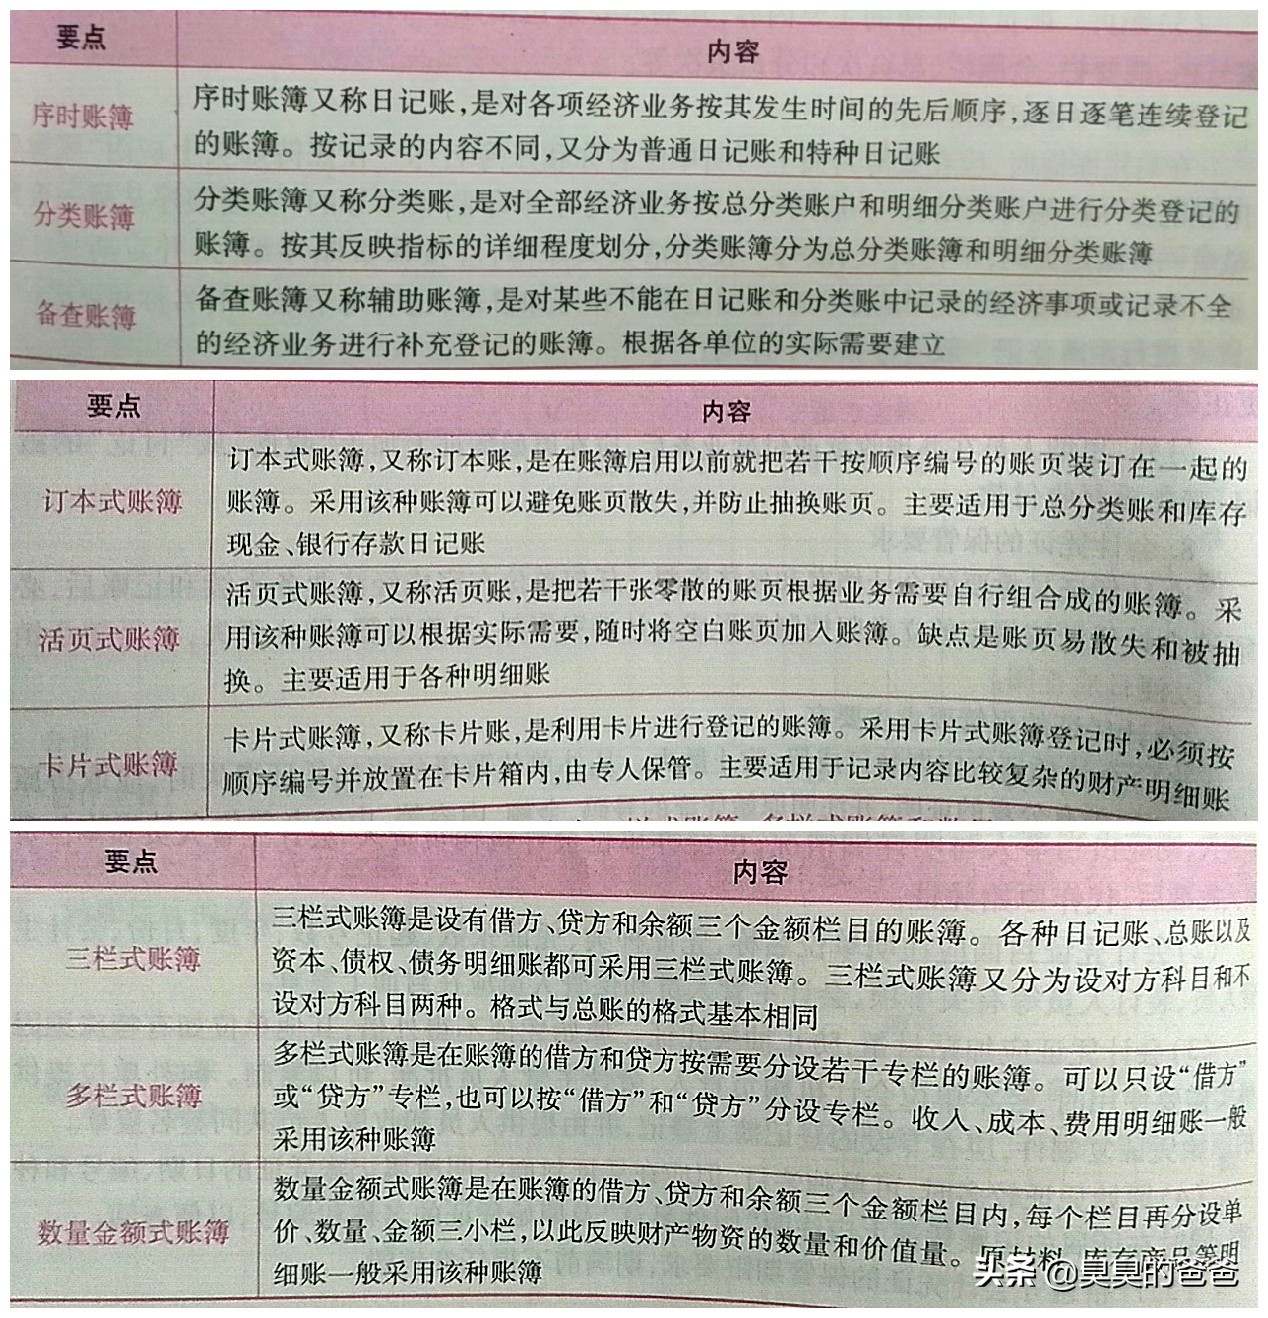 要点
内容
序时账簿
序时账簿又称日记账,是对各项经济业务按其发生时间的先后顺序,逐日逐笔连续登记
的账簿。按记录的内容不同,又分为普通日记账和特种日记账
分类账簿
分类账簿又称分类账,是对全部经济业务按总分类账户和明细分类账户进行分类登记的
账簿。按其反映指标的详细程度划分,分类账簿分为总分类账簿和明细分类账簿
备查账簿
备查账簿又称辅助账簿,是对某些不能在日记账和分类账中记录的经济事项或记录不全
的经济业务进行补充登记的账簿。根据各单位的实际需要建立
要点
内容
订本式账簿
订本式账簿,又称订本账,是在账簿启用以前就把若干按顺序编号的账页装订在一起的
账簿。采用该种账簿可以避免账页散失,并防止抽换账页。主要适用于总分类账和库存
现金、银行存款日记账
活页式账簿
活页式账簿,又称活页账,是把若干张零散的账页根据业务需要自行组合成的账簿。采
用该种账簿可以根据实际需要,随时将空白账页加入账簿。缺点是账页易散失和被抽
换。主要适用于各种明细账
卡片式账簿
卡片式账簿,又称卡片账,是利用卡片进行登记的账簿。采用卡片式账簿登记时,必须按
顺序编号并放置在卡片箱内,由专人保管。主要适用于记录内容比较复杂的财产明细账
要点
内容
三栏式账簿
三栏式账簿是设有借方、贷方和余额三个金额栏目的账簿。各种日记账、总账以及
资本、债权、债务明细账都可采用三栏式账簿。三栏式账簿又分为设对方科目和不
设对方科目两种。格式与总账的格式基本相同
多栏式账簿
多栏式账簿是在账簿的借方和贷方按需要分设若干专栏的账簿。可以只设“借方”
或“贷方”专栏,也可以按“借方”和“贷方”分设专栏。收入、成本、费用明细账一般
采用该种账簿
数量金额式账簿
数量金额式账簿是在账簿的借方、贷方和余额三个金额栏目内,每个栏目再分设单
价、数量、金额三小栏,以此反映财产物资的数量和价值量。原材料、库存商品等明
细账一般采用该种账簿
头条 @昊昊的爸爸